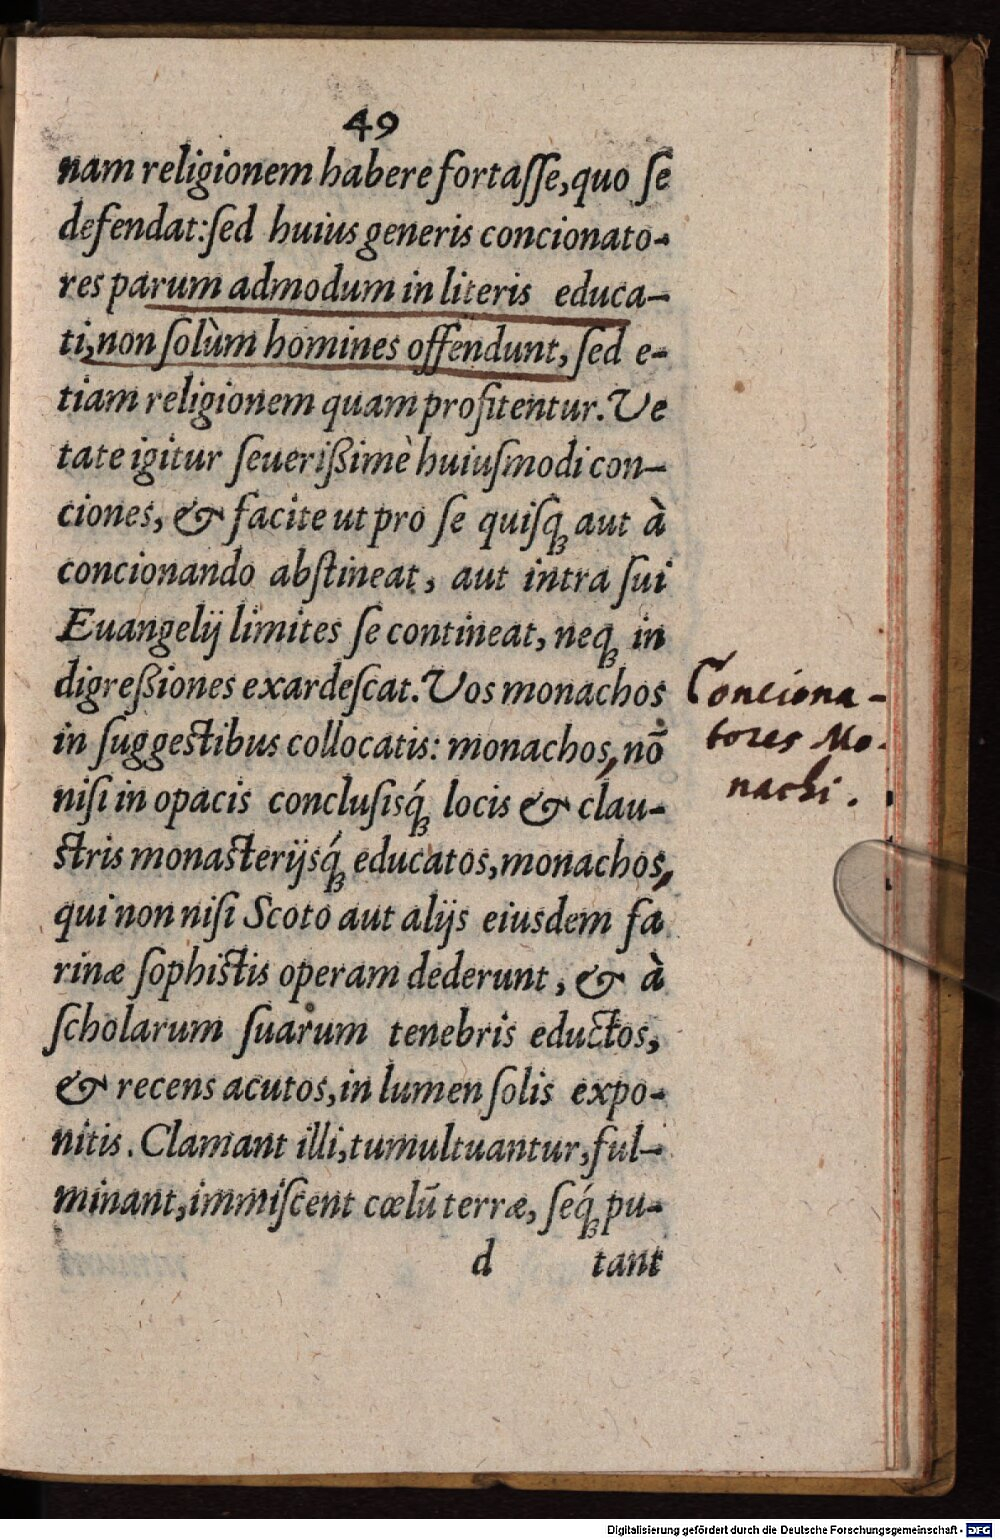 49
nam religionem habere fortaſſe, quo ſe
defendat: ſed huius generis concionato-
res parum admodum in literis educa-
ti, non ſolùm homines offendunt, ſed e-
tiam religionem quam profitentur. Ve
tate igitur ſeuerißimè huiuſmodi con-
ciones, & facite ut pro ſe quiſq; aut à
concionando abſtineat, aut intra ſui
Euangelij limites ſe contineat, neq; in
digreßiones exardeſcat. Vos monachos
in ſuggeſtibus collocatis: monachos, nō
niſi in opacis concluſisq́; locis & clau-
ſtris monaſterijsq́; educatos, monachos,
qui non niſi Scoto aut alijs eiusdem fa
rinæ ſophiſtis operam dederunt, & à
ſcholarum ſuarum tenebris eductos,
& recens acutos, in lumen ſolis expo-
nitis. Clamant illi, tumultuantur, ful-
minant, immiſcent cœlū terræ, ſeq́; pu-
d tant
Conciona-
tores Mo-
nachi.
Digitalisierung gefördert durch die Deutsche Forschungsgemeinschaft - DFG